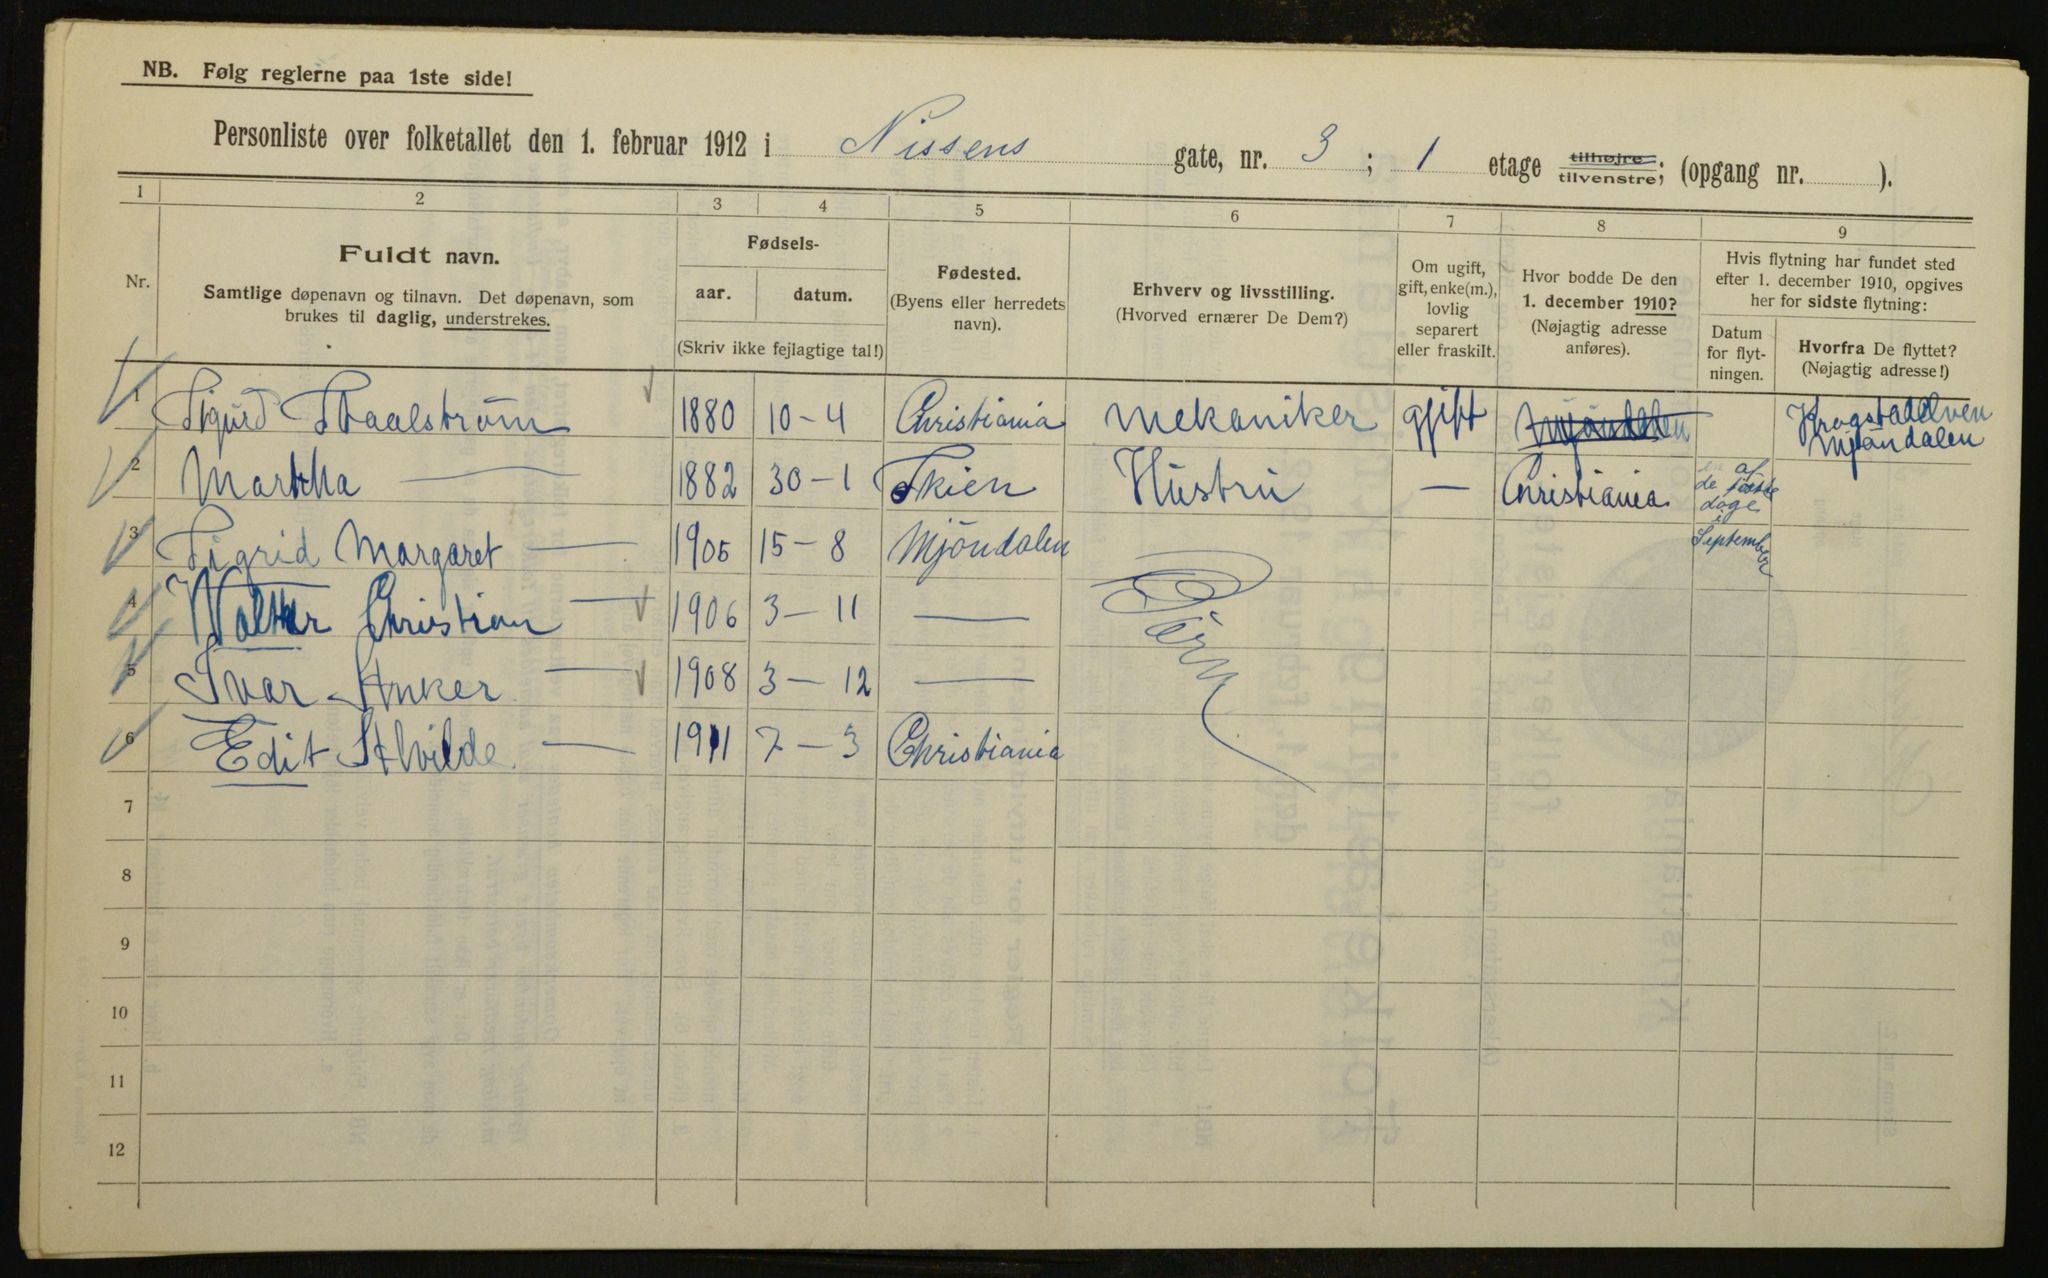 NB. Følg reglerne paa 1ste side!
Personliste over folketallet den 1. februar 1912 i Nissens gate, nr. 3; 1 etage tilhøjre tilvenstre; (opgang nr. ).
1 2 3 4 5 6 7 8 9
Nr.
Fuldt navn.
Samtlige døpenavn og tilnavn. Det døpenavn, som
brukes til daglig, understrekes.
Fødsels-
aar. datum.
(Skriv ikke fejlagtige tal!)
Fødested.
(Byens eller herredets
navn).
Erhverv og livsstilling.
(Hvorved ernærer De Dem?)
Om ugift,
gift, enke(m.),
lovlig
separert
eller fraskilt.
Hvor bodde De den
1. december 1910?
(Nøjagtig adresse
anføres).
Hvis flytning har fundet sted
efter 1. december 1910, opgives
her for sidste flytning:
Datum
for flyt-
ningen.
Hvorfra De flyttet?
(Nøjagtig adresse!)
1 Sigurd Staalstrøm 1880 10-4 Christiania Mekaniker gjift Mjöndalen Krogstadelven
Mjöndalen
2 Martha — 1882 30-1 Skien Hustru — Christiania
en af
de første
dage
i
September
3 Sigrid Margaret — 1905 15-8 Mjöndalen
4 Walther Christian — 1906 3-11 — Börn
5 Ivar Anker — 1908 3-12 —
6 Edit Alvilde — 1911 7-3 Christiania
7
8
9
10
11
12